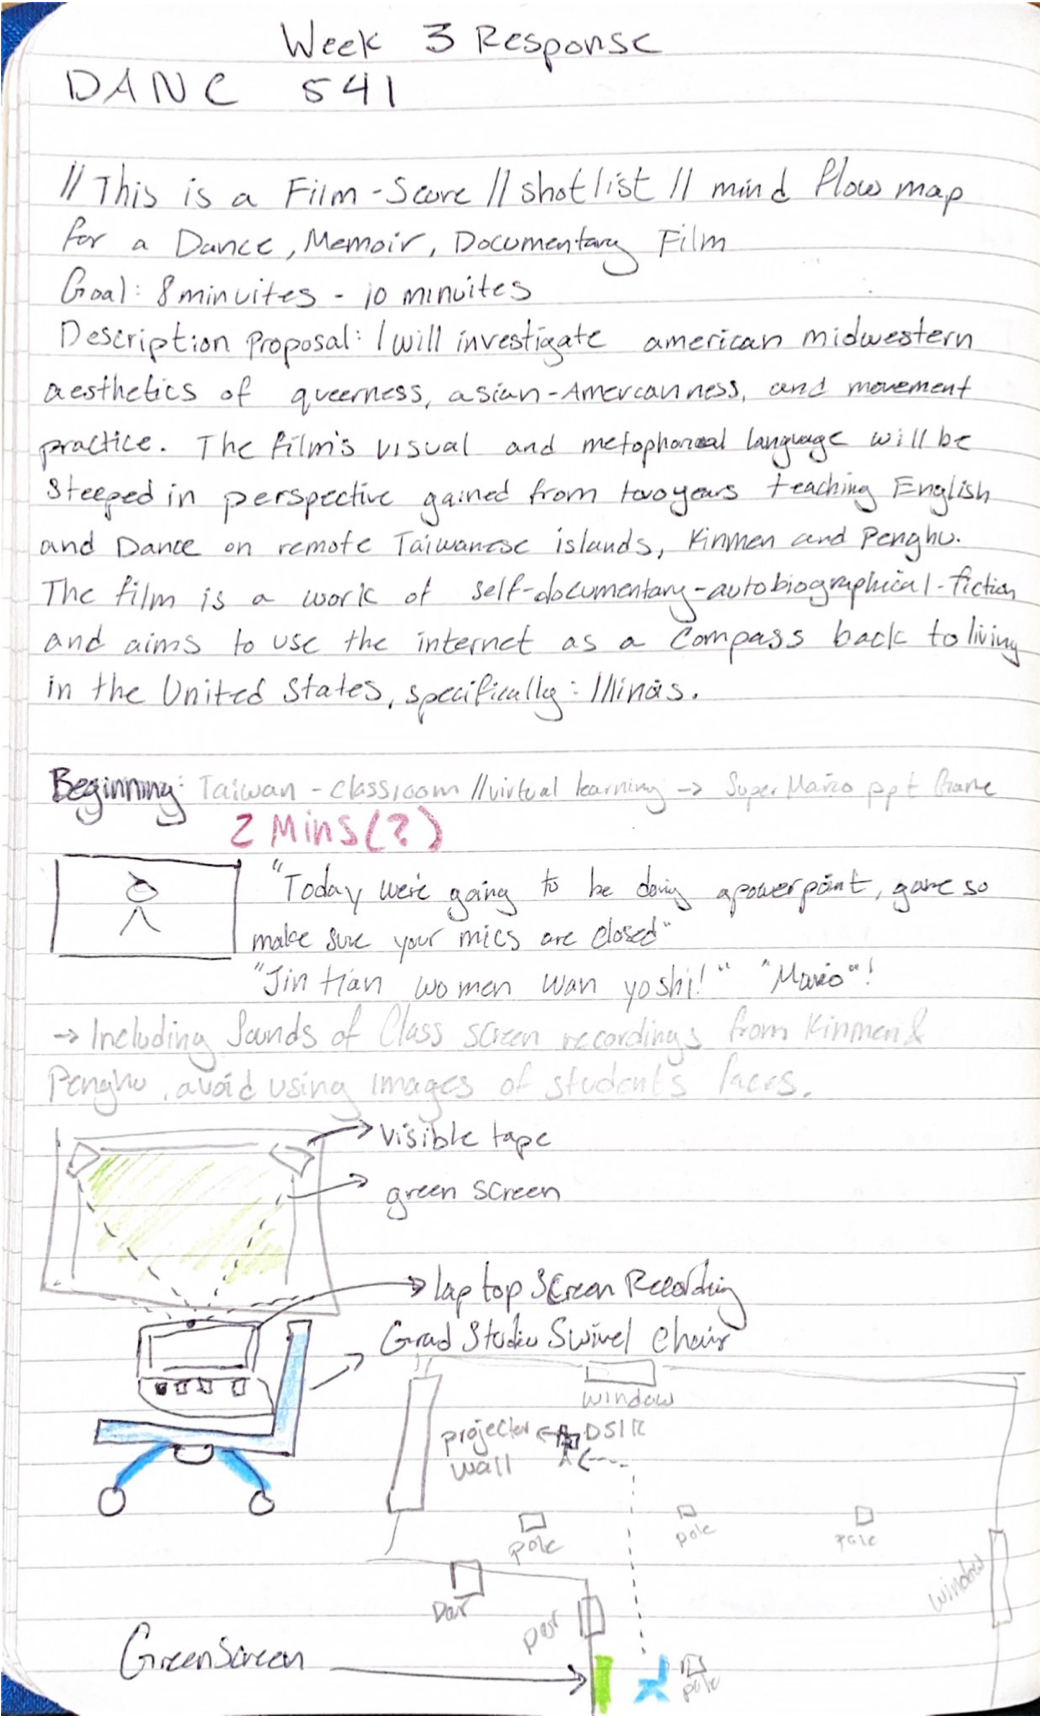 Week 3 Response
DANC 541
// This is a Film-Score // shotlist // mind flow map
for a Dance, Memoir, Documentary Film
Goal: 8 minuites - 10 minuites
Description Proposal: I will investigate american midwestern
aesthetics of queerness, asian-Amercanness, and movement
practice. The film's visual and metaphoracal language will be
Steeped in perspective gained from two years teaching English
and Dance on remote Taiwanese islands, Kinmen and Penghu.
The film is a work of self-documentary-autobiographical-fiction
and aims to use the internet as a Compass back to living
in the United States, specifically: Illinois.
Beginning: Taiwan - classroom // virtual learning → Super Mario ppt Game
2 Mins(?)
"Today we're going to be doing a powerpoint, game so
make sure your mics are closed"
"Jin tian women wan yoshi!" "Mario"!
→ Including Sounds of Class screen recordings from Kinmen &
Penghu, avoid using images of student's faces.
visible tape
green screen
laptop Screen Recording
Grad Studio Swivel Chair
window
projector
wall
DSLR
pole
pole
pole
window
Door
Door
pole
GreenScreen